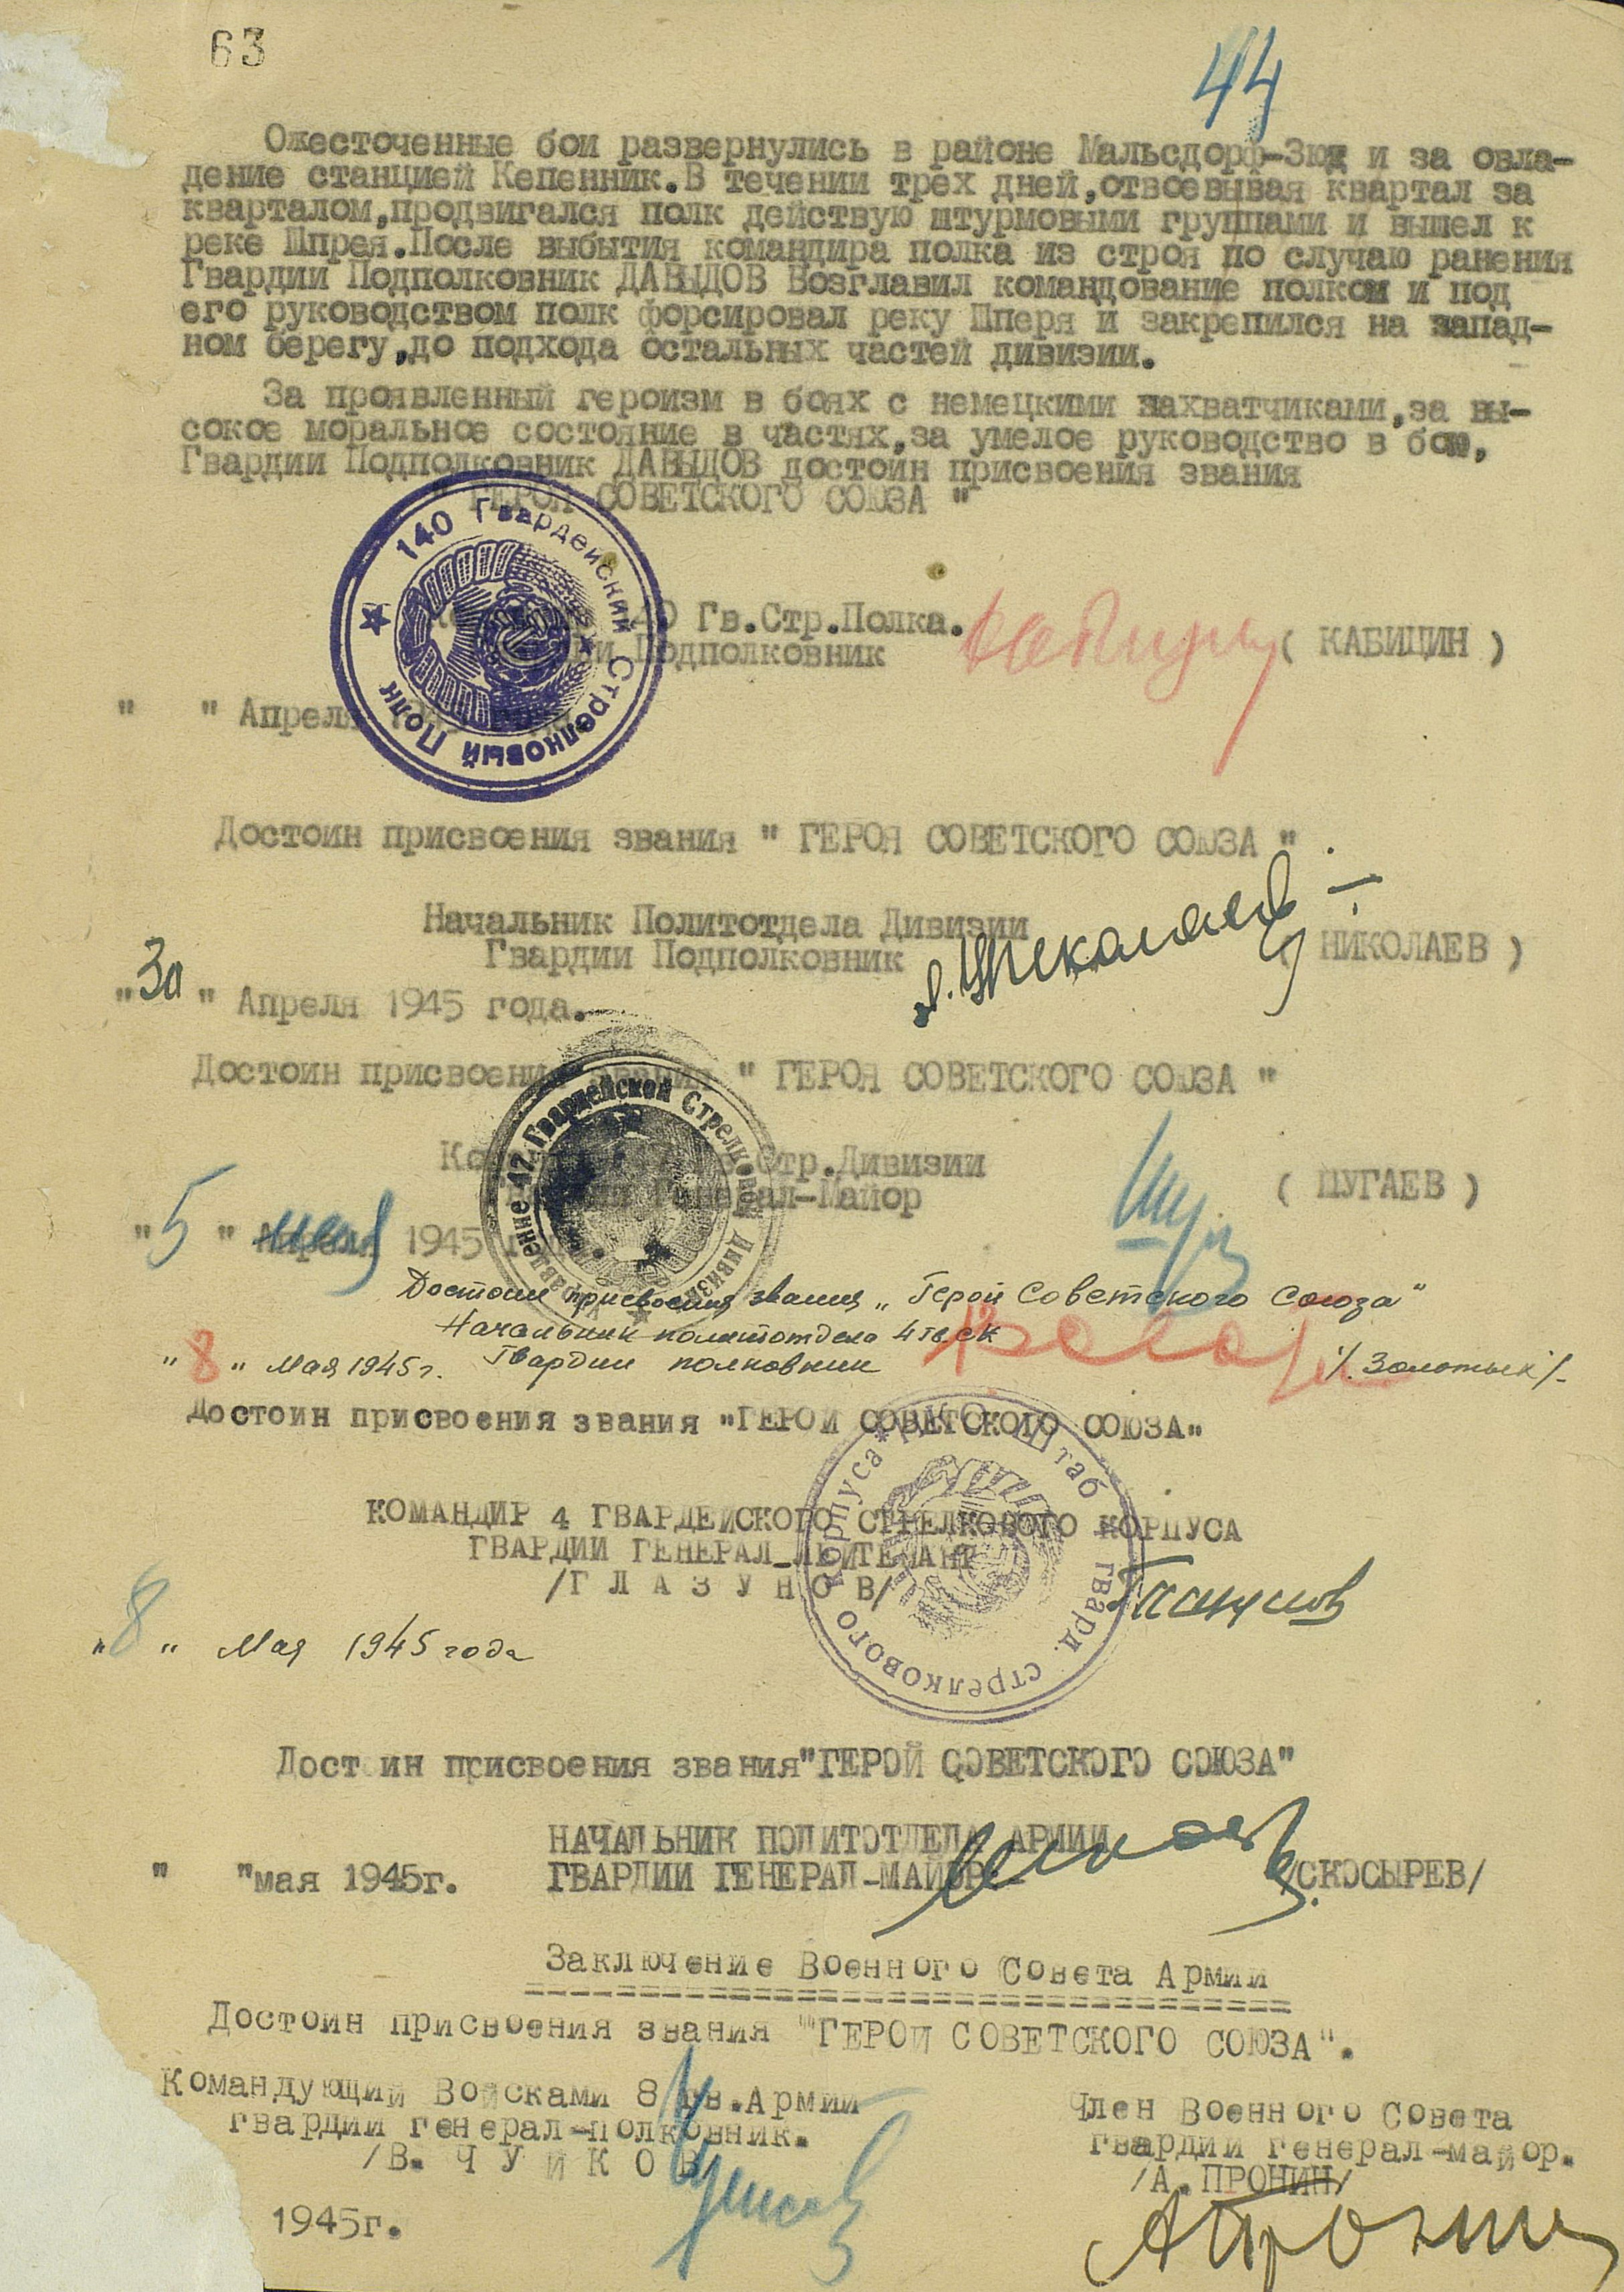 63
44
Ожесточенные бои развернулись в районе Мальсдорф-Зюд и за овла-
дение станцией Кепенник.В течении трех дней,отвоевывая квартал за
кварталом,продвигался полк действую штурмовыми группами и вышел к
реке Шпрея.После выбытия командира полка из строя по случаю ранения
Гвардии Подполковник ДАВЫДОВ Возглавил командование полком и под
его руководством полк форсировал реку Шперя и закрепился на запад-
ном берегу,до подхода остальных частей дивизии.
За проявленный героизм в боях с немецкими захватчиками,за вы-
сокое моральное состояние в частях,за умелое руководство в бою,
Гвардии Подполковник ДАВЫДОВ достоин присвоения звания
ГЕРОЯ СОВЕТСКОГО СОЮЗА "
140 Гвардейский Стрелковый Полк
Гв.Стр.Полка.
Подполковник ( КАБИЦИН )
" " Апреля
Достоин присвоения звания " ГЕРОЯ СОВЕТСКОГО СОЮЗА "
Начальник Политотдела Дивизии
Гвардии Подполковник ( НИКОЛАЕВ )
"30" Апреля 1945 года.
Достоин присвоения звания " ГЕРОЯ СОВЕТСКОГО СОЮЗА "
Управление 47 Гвардейской Стрелковой Дивизии
Стр.Дивизии
Генерал-Майор ( ШУГАЕВ )
"5" Апреля мая 1945
Достоин присвоения звания „Герой Советского Союза"
Начальник политотдела 4 гв. ск
"8" Мая 1945 г. Гвардии полковник /. Золотых /.
Достоин присвоения звания "ГЕРОЙ СОВЕТСКОГО СОЮЗА"
КОМАНДИР 4 ГВАРДЕЙСКОГО СТРЕЛКОВОГО КОРПУСА
ГВАРДИИ ГЕНЕРАЛ-ЛЕЙТЕНАНТ
/Г Л А З У Н О В/
Штаб гвард. стрелкового корпуса * НКО
"8" Мая 1945 года
Достоин присвоения звания"ГЕРОЙ СОВЕТСКОГО СОЮЗА"
НАЧАЛЬНИК ПОЛИТОТДЕЛА АРМИИ
" "мая 1945г. ГВАРДИИ ГЕНЕРАЛ-МАЙОР: /СКОСЫРЕВ/
Заключение Военного Совета Армии
Достоин присвоения звания "ГЕРОЙ СОВЕТСКОГО СОЮЗА".
Командующий Войсками 8 Гв.Армии
гвардии генерал-полковник.
/В. Ч У Й К О В/
Член Военного Совета
гвардии генерал-майор.
/А.ПРОНИН/
1945г.